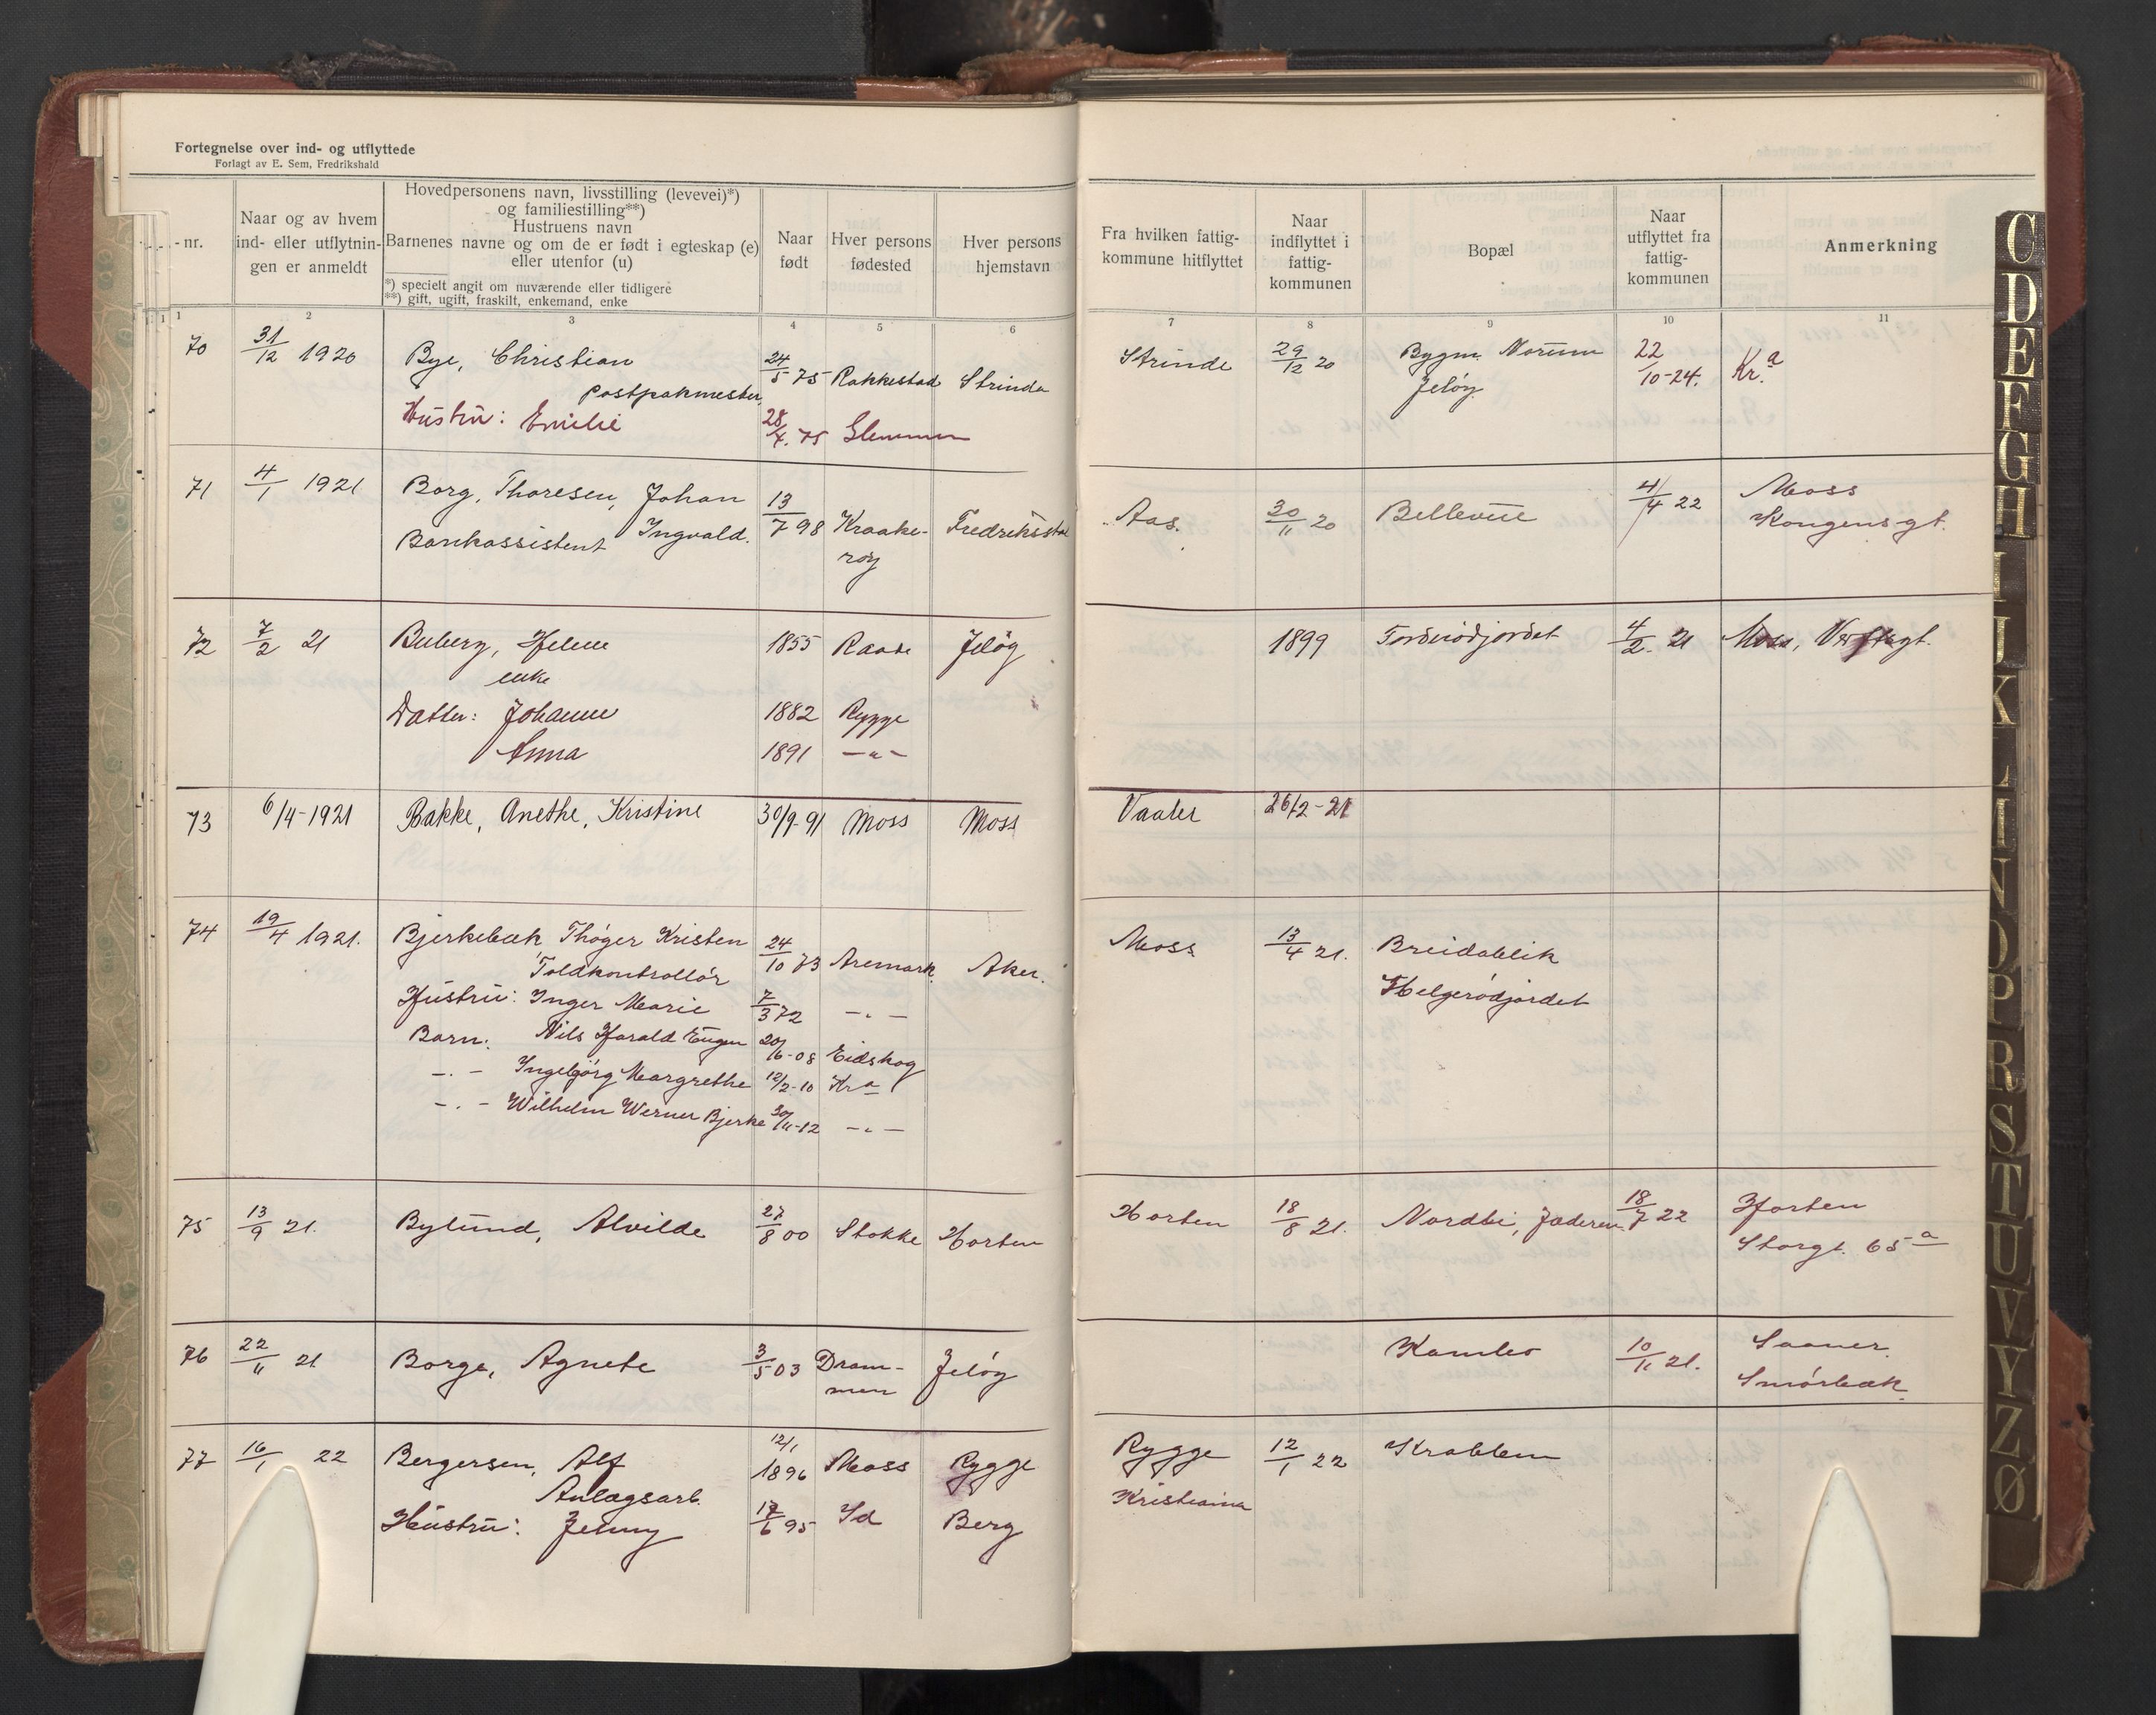 Fortegnelse over ind- og utflyttede
Forlagt av E. Sem, Fredrikshald
nr.
Naar og av hvem
ind- eller utflytnin-
gen er anmeldt
Hovedpersonens navn, livsstilling (levevei)*)
og familiestilling**)
Hustruens navn
Barnenes navne og om de er født i egteskap (e)
eller utenfor (u)
*) specielt angit om nuværende eller tidligere
**) gift, ugift, fraskilt, enkemand, enke
Naar
født
Hver persons
fødested
Hver persons
hjemstavn
Fra hvilken fattig-
kommune hitflyttet
Naar
indflyttet i
fattig-
kommunen
Bopæl
Naar
utflyttet fra
fattig-
kommunen
Anmerkning
1 2 3 4 5 6 7 8 9 10 11
70 31/12 1920 Bye, Christian 24/5 75 Rakkestad Strinda Strinde 29/12 20 Bygm. Norum 22/10-24. Kr.a
postpakmester Jeløy
Hustru: Emilie 28/4. 75 Glemmen
71 4/1 1921 Borg, Thoresen, Johan 13/7 98 Kraake- Fredriksstad Aas. 30/11 20 Bellevue 4/4 22 Moss
Bankassistent Ingvald. røy Kongensgt.
72 7/2 21 Buberg, Helene 1855 Raade Jeløy 1899 Torderødjordet 4/2. 21 Moss, Verftsgt.
enke
Datter: Johanne 1882 Rygge
Anna 1891 -"-
73 6/4-1921 Bakke, Anethe, Kristine 30/9-91 Moss Moss Vaaler 26/2-21
74 19/4 1921. Bjerkebæk Thøger Kristen 24/10 73 Aremark Aker. Moss 13/4 21. Breidablik
Toldkontrollør Helgerødjordet
Hustru: Inger Marie 7/3 72 -"-
Barn: Nils Harald Eugen 20/6-08 Eidskog
-"- Ingebjørg Margrethe 12/2-10 Kra
-"- Wilhelm Werner Bjerke 30/11-12 -"-
75 13/9 21. Bylund, Alvilde 27/8 00 Stokke Horten Horten 18/8 21. Nordbi, Jaderen 18/7 22 Horten
Storgt. 65 a
76 22/11 21 Borge, Agnete 3/5 03 Dram- Jeløy Kambo 10/11 21. Saaner.
men Smørbæk.
77 16/1 22 Bergersen, Alf 12/1 1896 Moss Rygge Rygge 12/1 22 Krabben
Anlægsarb. Kristiania
Hustru: Jenny 17/6 95 Id Berg
C
D
E
F
G
H
I
J
K
L
M
N
O
P
R
S
T
U
V
Y
Z
Ø